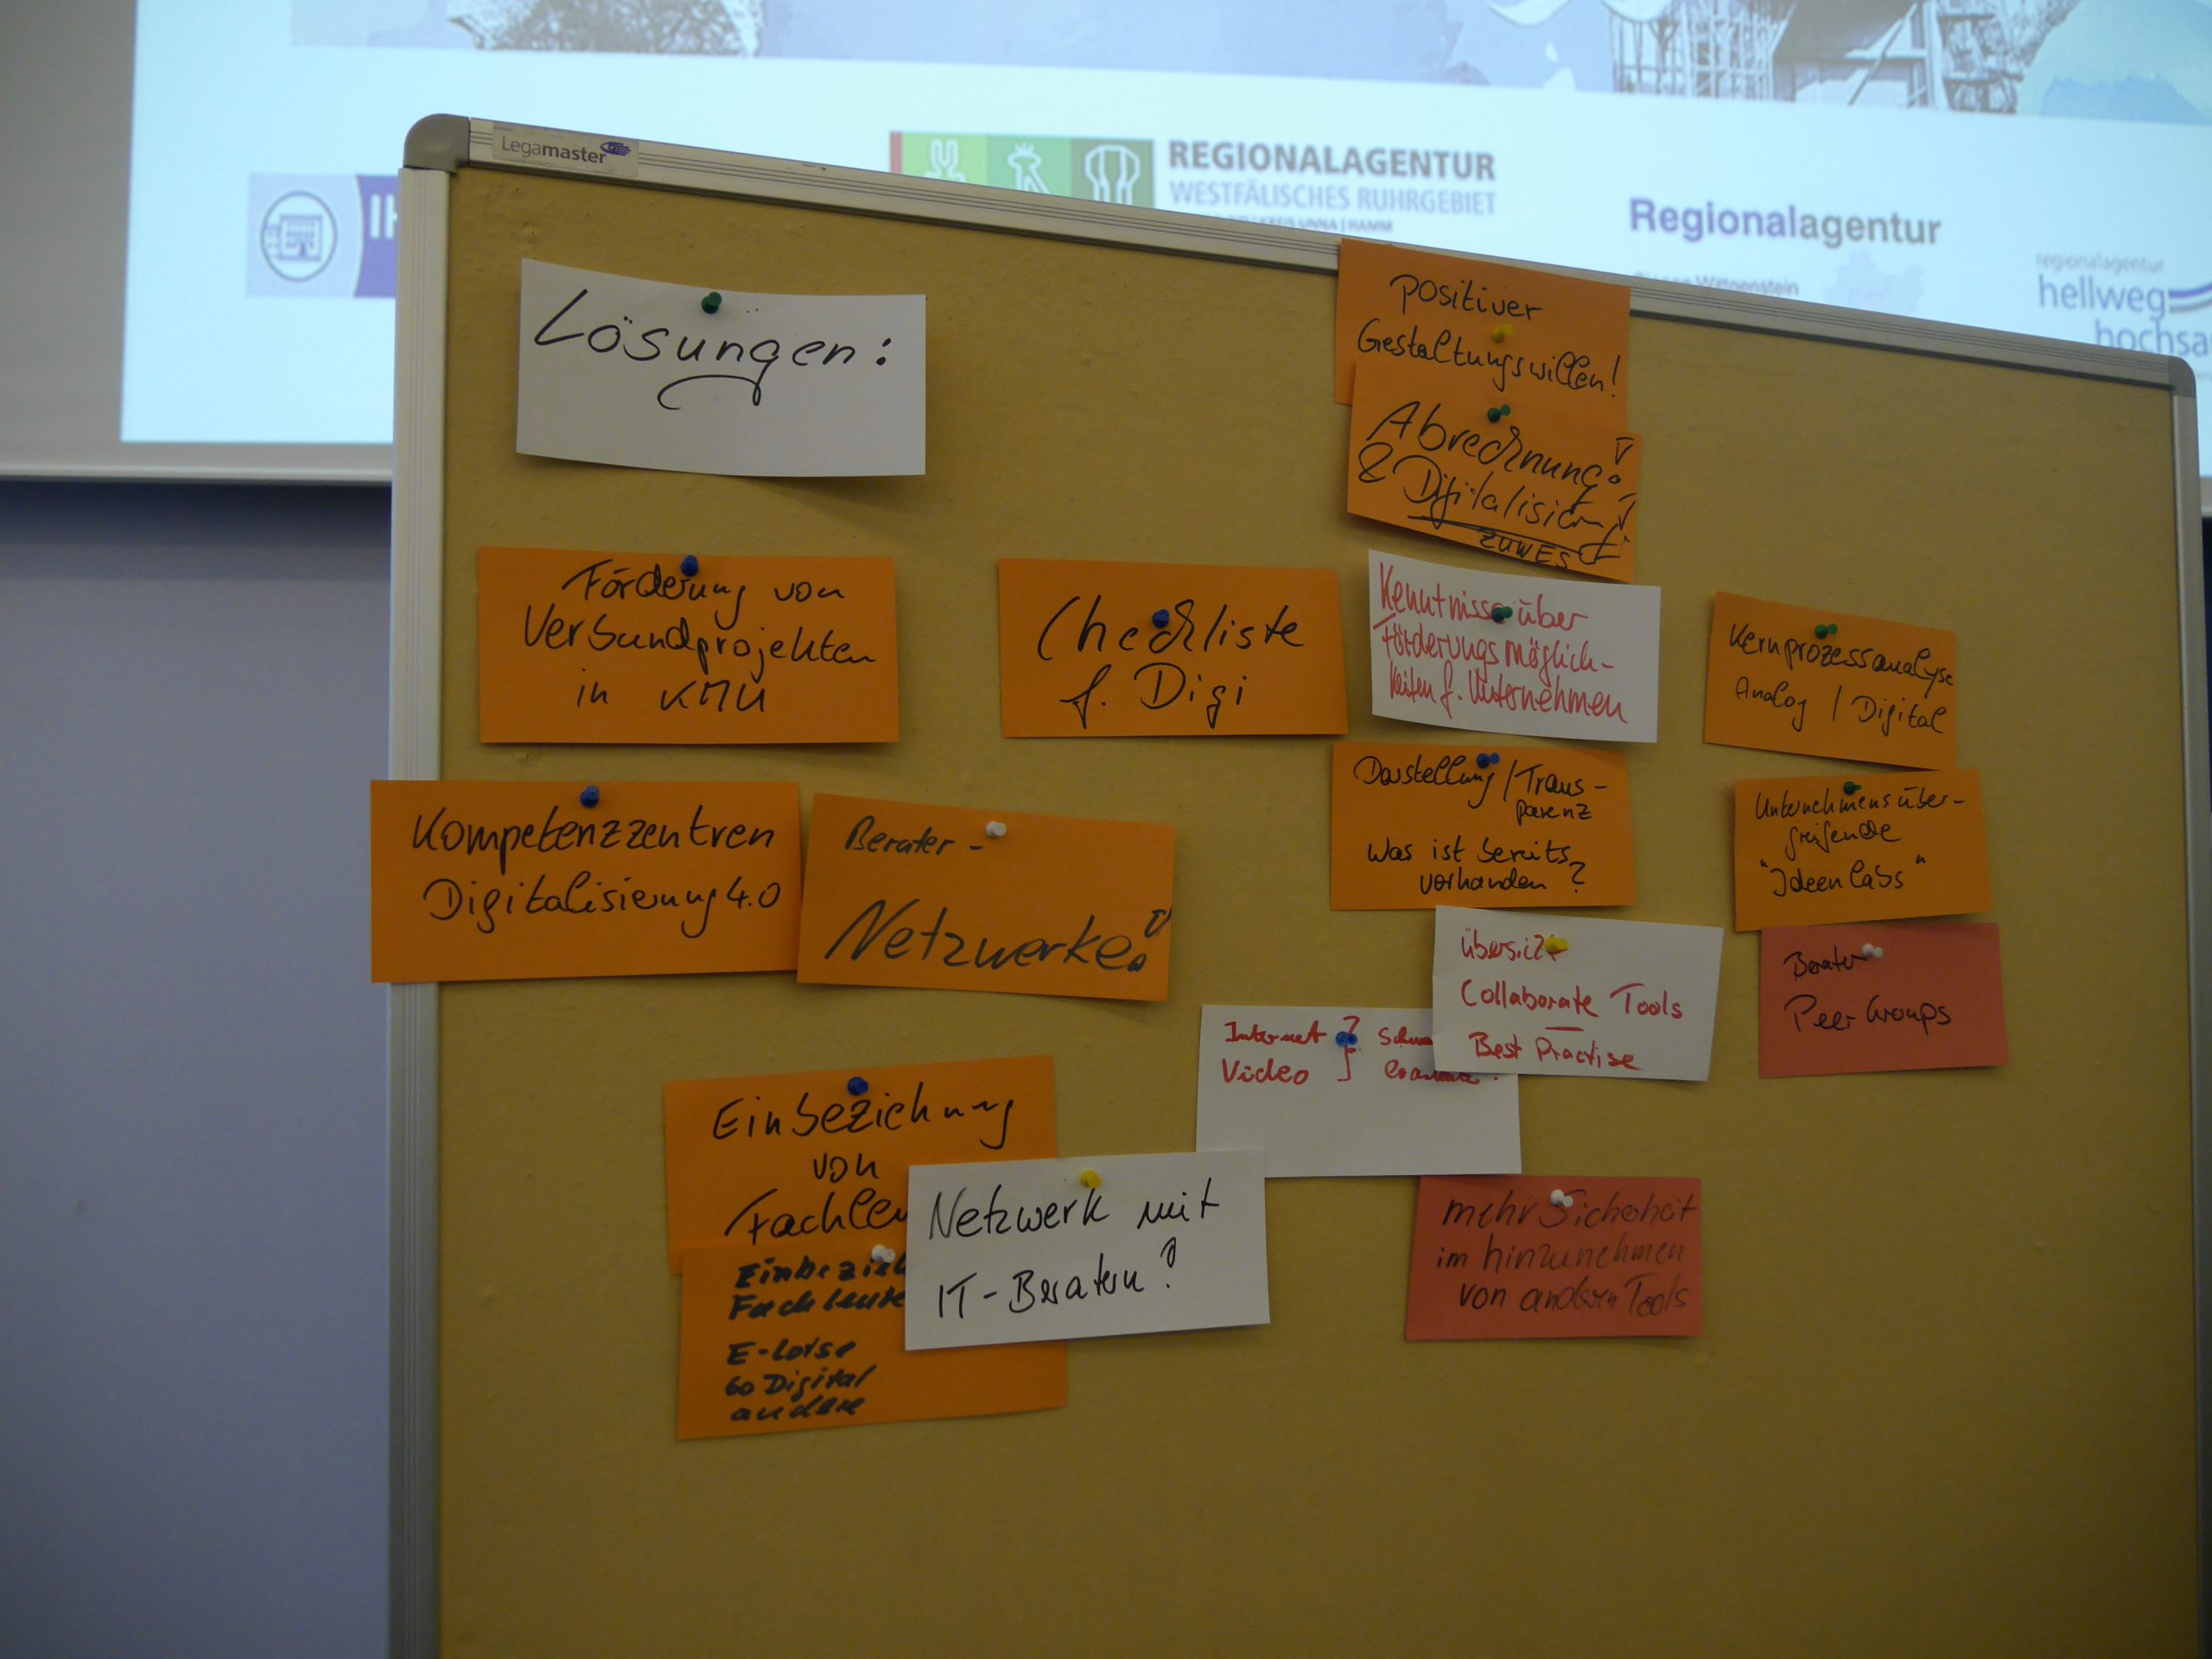 Legamaster
REGIONALAGENTUR
WESTFÄLISCHES RUHRGEBIET
KREIS UNNA | HAMM
Regionalagentur
Siegen-Wittgenstein
regionalagentur
hellweg
hochsa
Lösungen:
positiver
Gestaltungswillen!
Abrechnung!
& Digitalisier
ZUWES
Förderung von
Verbundprojekten
in KMU
Checkliste
f. Digi
Kenntnisse über
Förderungsmöglich-
keiten f. Unternehmen
Kernprozessanalyse
Analog / Digital
Kompetenzzentren
Digitalisierung 4.0
Berater-
Netzwerke!
Darstellung / Trans-
parenz
Was ist bereits
vorhanden?
Unternehmensüber-
greifende
"Ideenlabs"
Übersicht
Collaborate Tools
Best Practise
Berater
Peer Groups
Internet
Video
Einbeziehung
von
Fachleu
Einbezieh
Fachleute
E-Lotse
Go Digital
andere
Netzwerk mit
IT-Beratern?
mehr Sicherheit
im hinzunehmen
von andern Tools